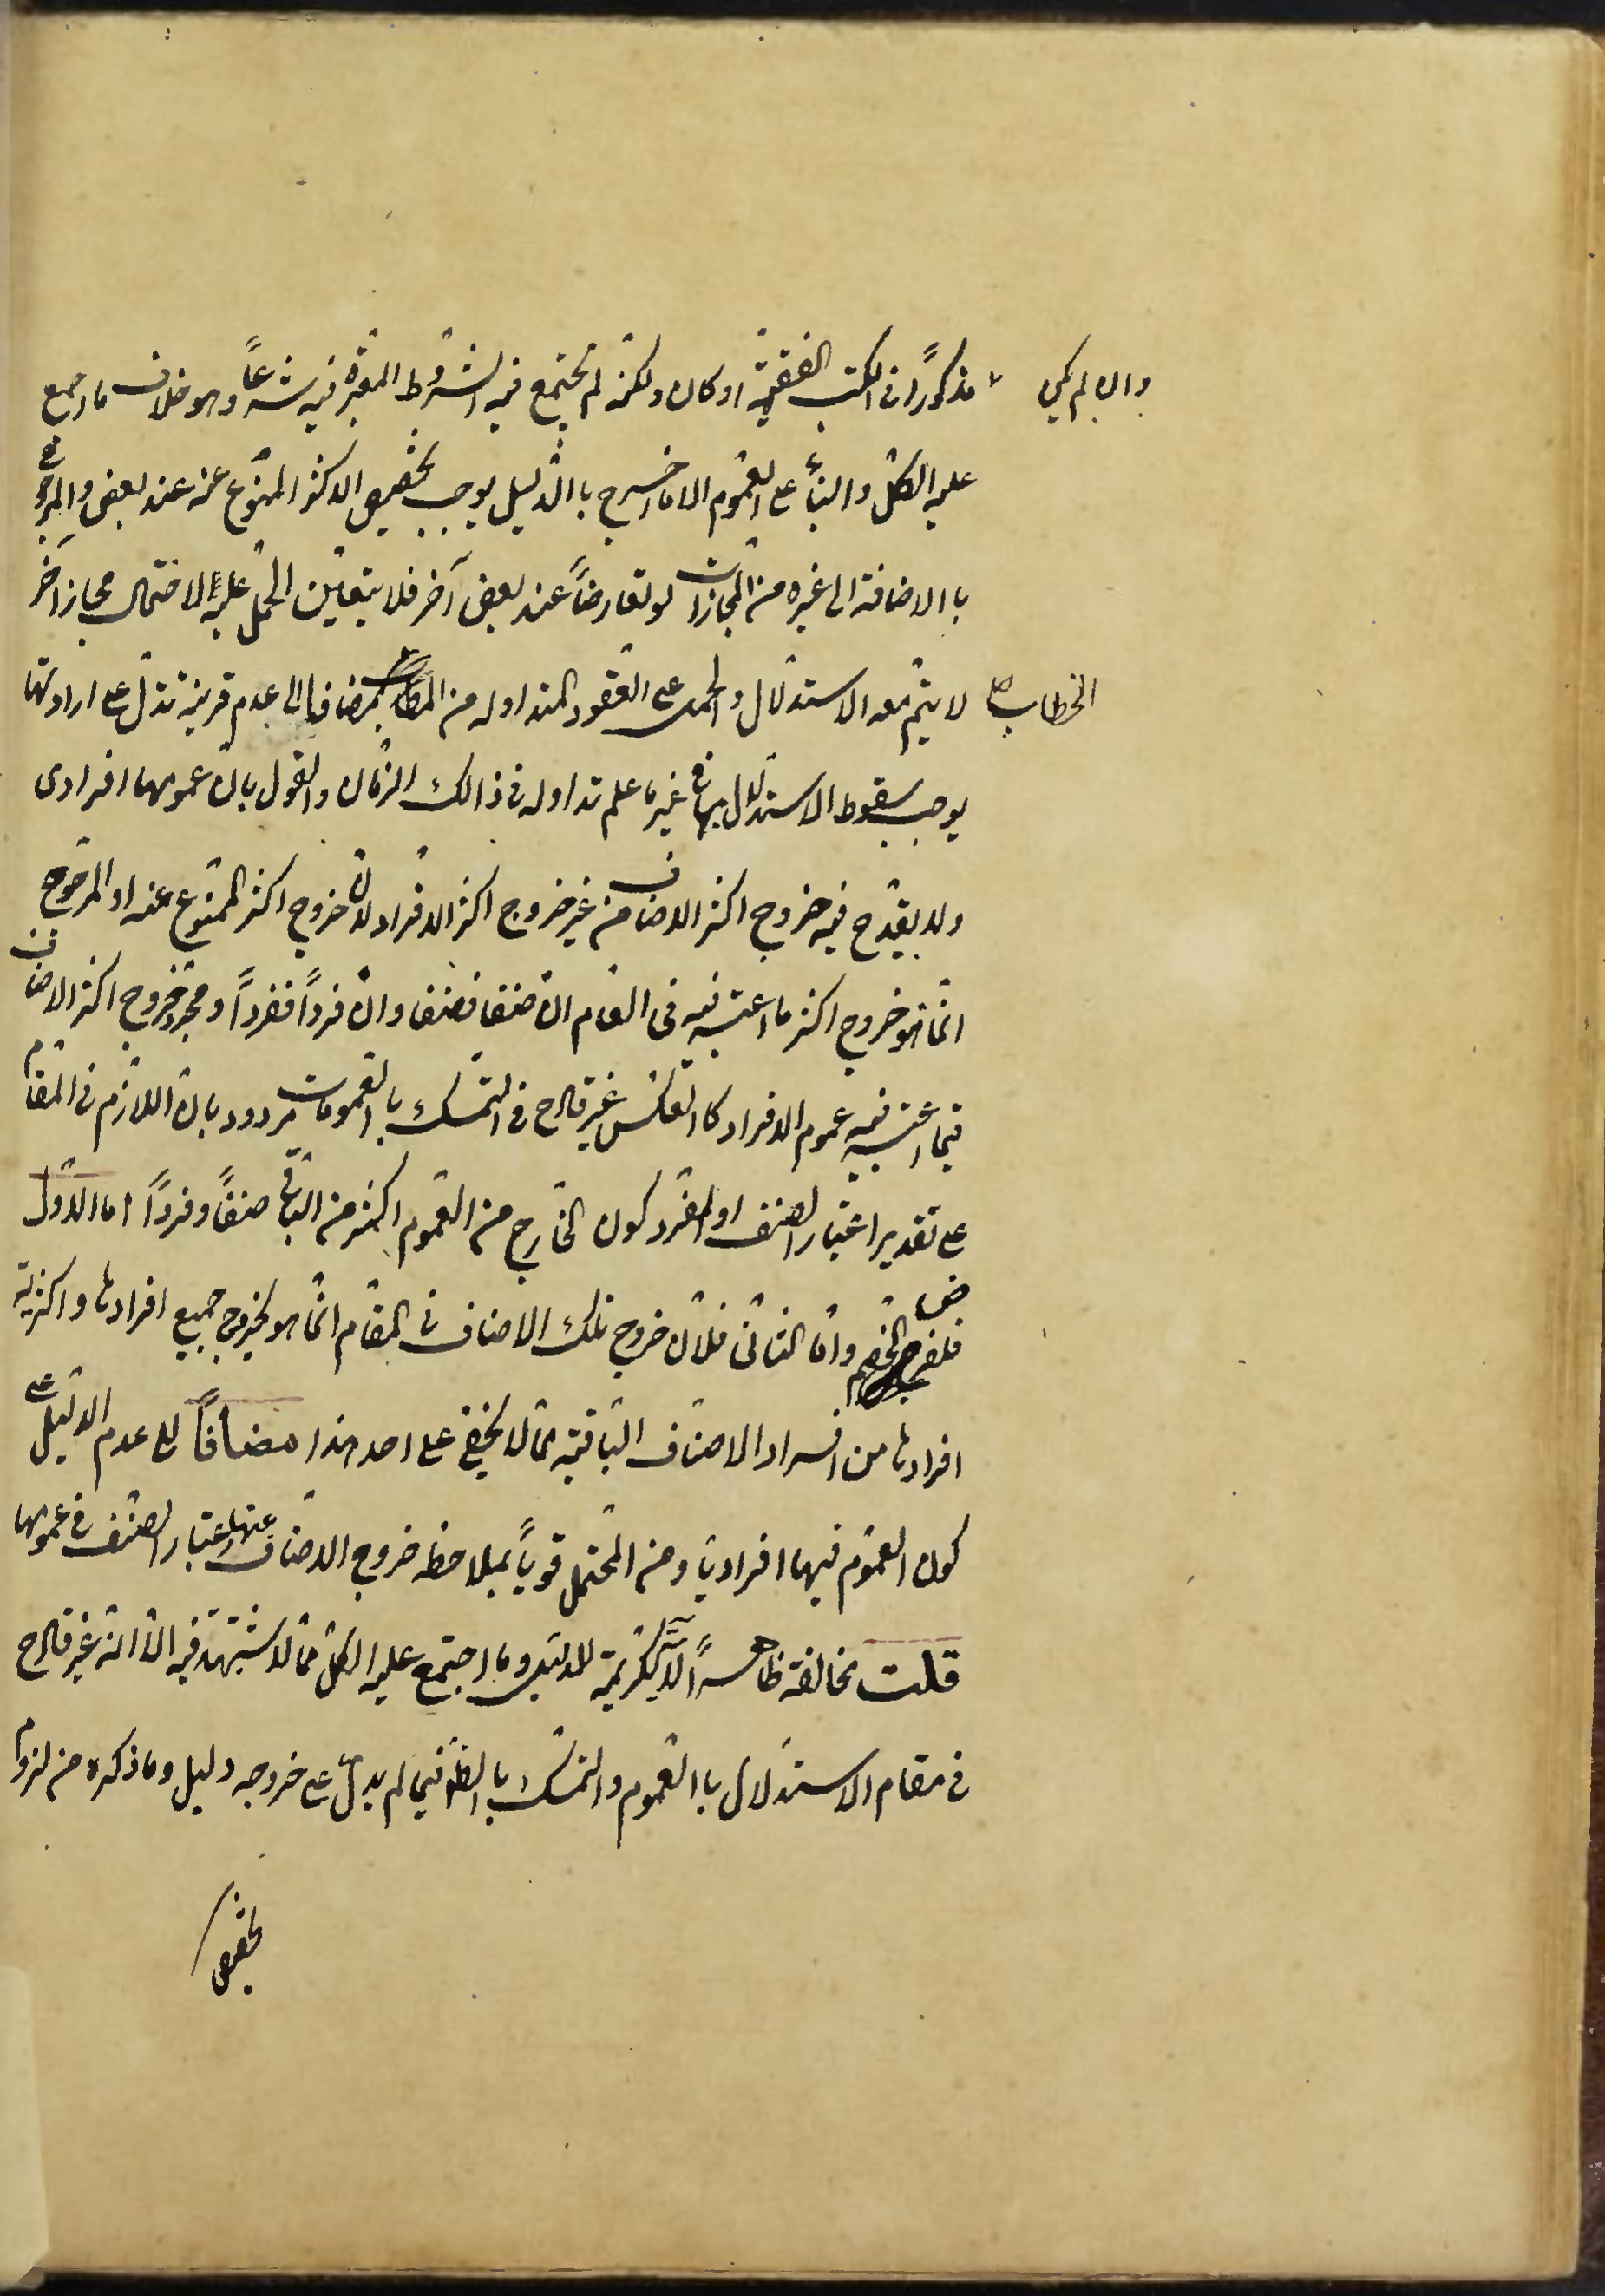 وان لم يكن مذكورًا في الكتب الفقهيّة او كان ولكنّه لم يجتمع فيه الشروط المعتبرة فيه شرعًا وهو خلاف ما اجمع
عليه الكلّ والبناء على العموم الا ما اخرج باالدّليل يوجب تخصيص الاكثر الممنوع عنه عند بعض والمرجوح
باالاضافة الى غيره من المجازات لو تعارضا عند بعض آخر فلا يتعيّن الحمل عليه لاحتمال مجاز آخر
لا يتمّ معه الاستدلال والحمل على العقود المتداوله من الخطاب مضافا الى عدم قرينة تدلّ على ارادتها
يوجب سقوط الاستدلال بها في غير ما علم تداوله في ذالك الزّمان والقول بان عمومها افرادى
ولا يقدح فيه خروج اكثر الاصناف من غير خروج اكثر الافراد لانّ خروج اكثر الممنوع عنه او المرجوح
انّما هو خروج اكثر ما اعتبر فيه في العام ان صنفا فصنفا وان فردًا ففردًا ومجرّد خروج اكثر الاصناف
فيما اعتبر فيه عموم الافراد كاالعكس غير قادح في التمسّك باالعمومات مردود بان اللازم في المقام
على تقدير اعتبار الصنف او الفرد كون الخارج من العموم اكثر من الباقى صنفًا وفردًا امّا الاوّل
فلفرض الخصم وامّا الثانى فلان خروج تلك الاصناف في المقام انّما هو بخروج جميع افرادها واكثريّة
افرادها من افراد الاصناف الباقية ممّا لا يخفى على احد هذا مضافًا الى عدم الدليل على
كون العموم فيها افراديّا ومن المحتمل قويًّا بملاحظة خروج الاصناف عنها اعتبار الصّنف في عمومها
قلت مخالفة ظاهر الآية الكريمة للدليل وما اجتمع عليه الكل ممّا لا شبهة فيه الّا انّه غير قادح
في مقام الاستدلال باالعموم والتمسّك باالظّ فيما لم يدلّ على خروجه دليل وما ذكره من لزوم
تخصيص